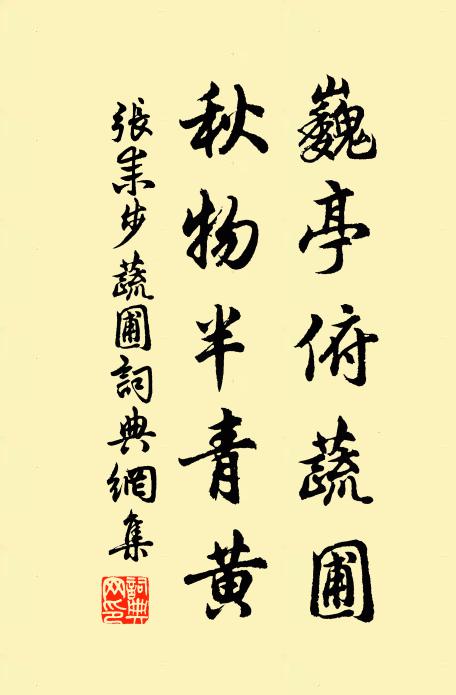 巍亭俯蔬圃
秋物半青黄
張耒步蔬圃詞典網集
詞典网印